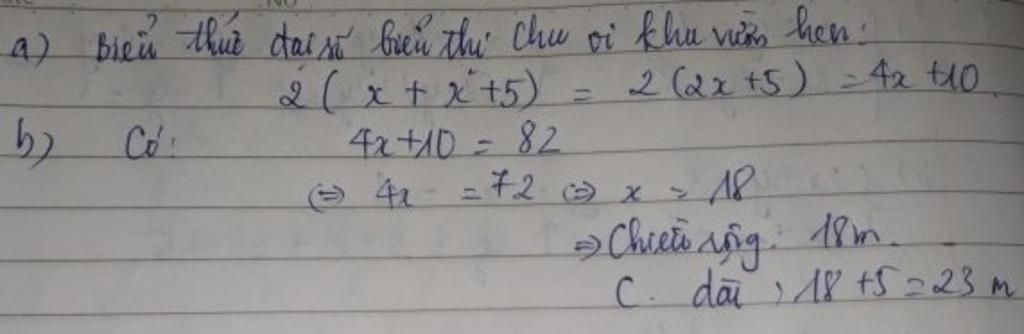 a) Biểu thức đại số biểu thị chu vi khu vườn trên:
2 ( x + x + 5) = 2 (2x + 5) = 4x + 10.
b) Có: 4x + 10 = 82
⇔ 4x = 72 ⇔ x = 18
⇒ Chiều rộng: 18m.
C. dài: 18 + 5 = 23 m